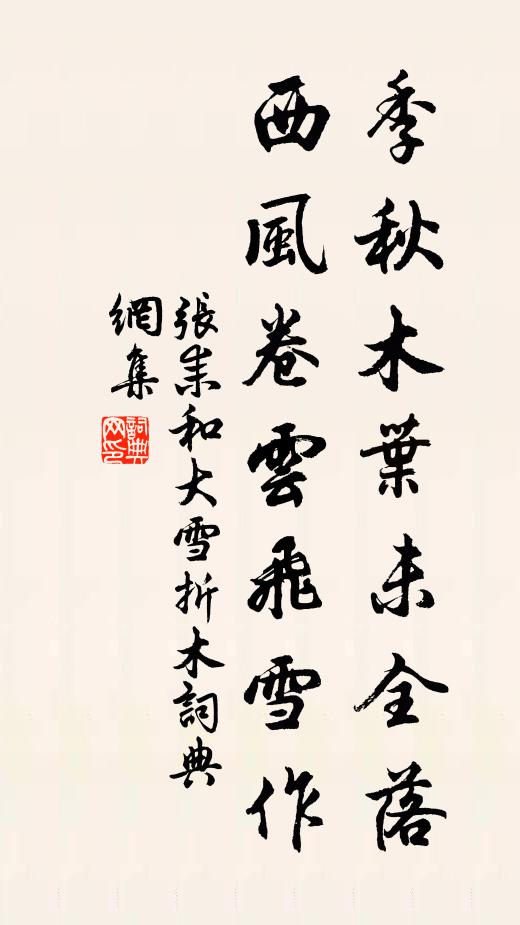 季秋木葉未全落
西風卷雲飛雪作
張耒和大雪折木詞典
網集
詞典網印